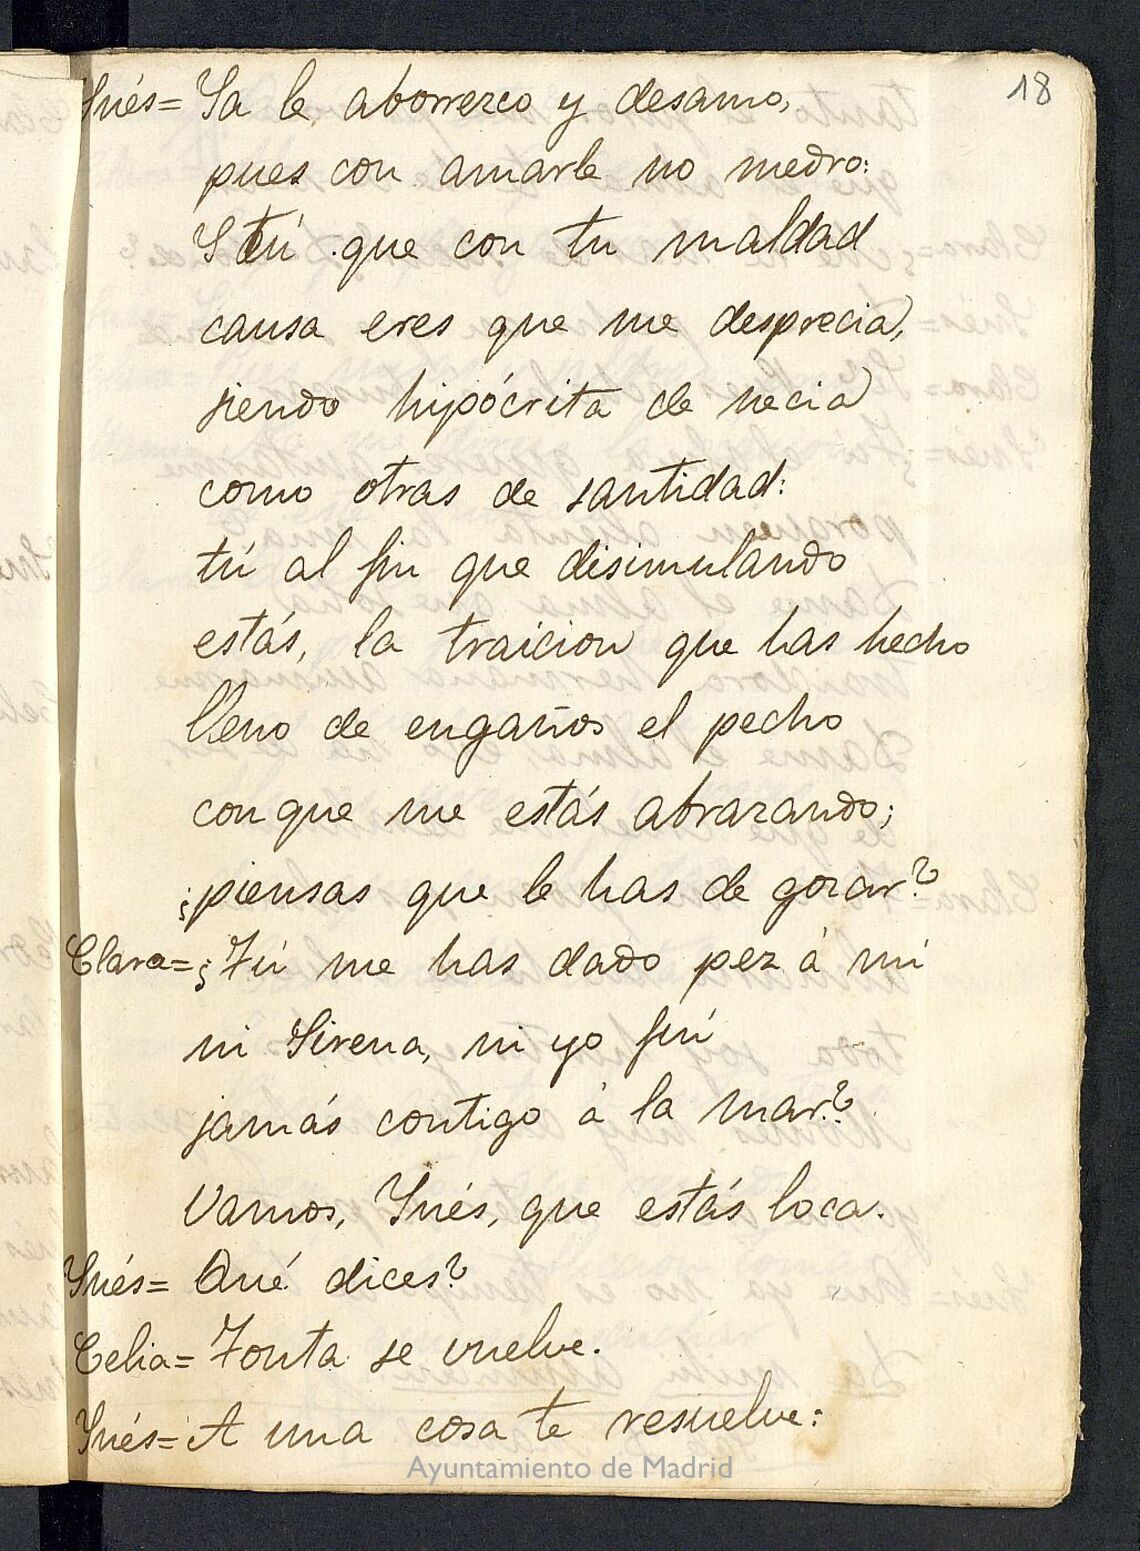 18
Inés= Ya le aborrezco y desamo,
pues con amarle no medro:
Y tú que con tu maldad
causa eres que me desprecia,
siendo hipócrita de necia
como otras de santidad:
tú al fin que disimulando
estás, la traicion que has hecho
lleno de engaños el pecho
con que me estás abrazando;
¿piensas que le has de gozar?
Clara= ¿Tú me has dado pez á mi
ni Sirena, ni yo fuí
jamás contigo á la mar?
Vamos, Inés, que estás loca.
Inés= Qué dices?
Celia= Tonta se vuelve.
Inés= A una cosa te resuelve:
Ayuntamiento de Madrid